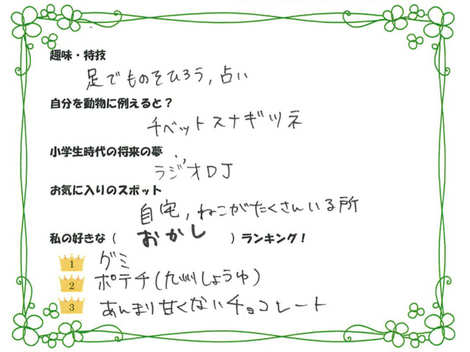 趣味・特技
足でものをひろう,占い
自分を動物に例えると?
チベットスナギツネ
小学生時代の将来の夢
ラジオDJ
お気に入りのスポット
自宅,ねこがたくさんいる所
私の好きな( おかし )ランキング!
1 グミ
2 ポテチ(九州しょうゆ)
3 あんまり甘くないチョコレート